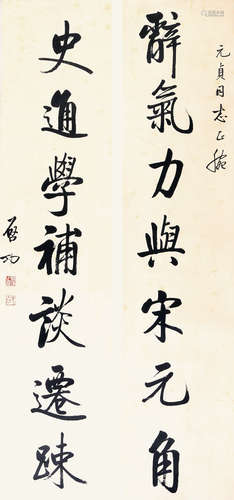 元貞同志正腕
辭氣力與宋元角
史通學補談遷疎
启功